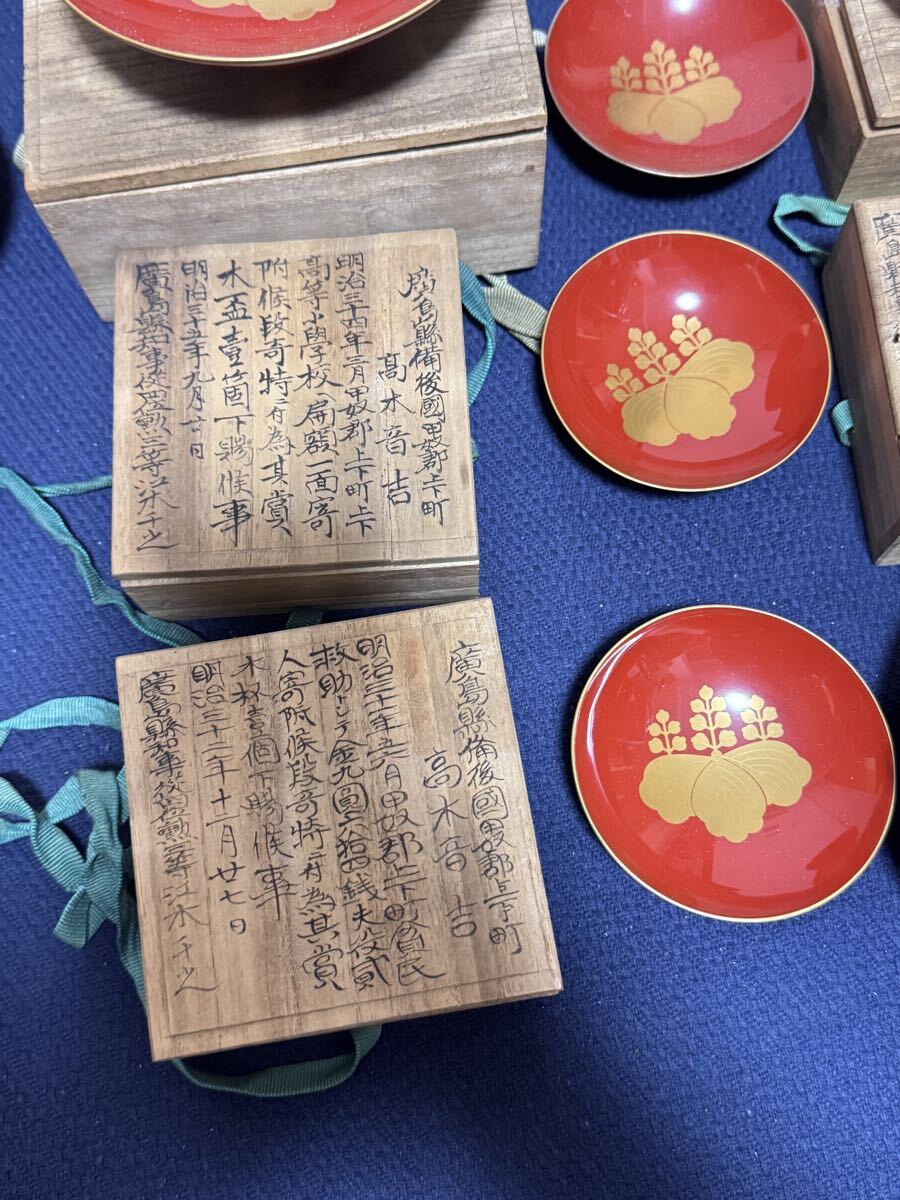 廣島縣備後國甲奴郡上下町
髙木音吉
明治三十四年三月甲奴郡上下町上下
高等小學校ヘ扁額一面寄
附候段奇特ニ付為其賞
木盃壹箇下賜候事
明治三十五年九月廿日
廣島縣知事從四位勳三等江木千之
廣島縣備後國甲奴郡上下町
高木音吉
明治三十年五六月甲奴郡上下町貧民
救助トシテ金九圓六拾四銭夫役貳
人寄附候段奇特ニ付為其賞
木杯壹個下賜候事
明治三十二年十二月廿七日
廣島縣知事從四位勲三等江木千之
廣島縣